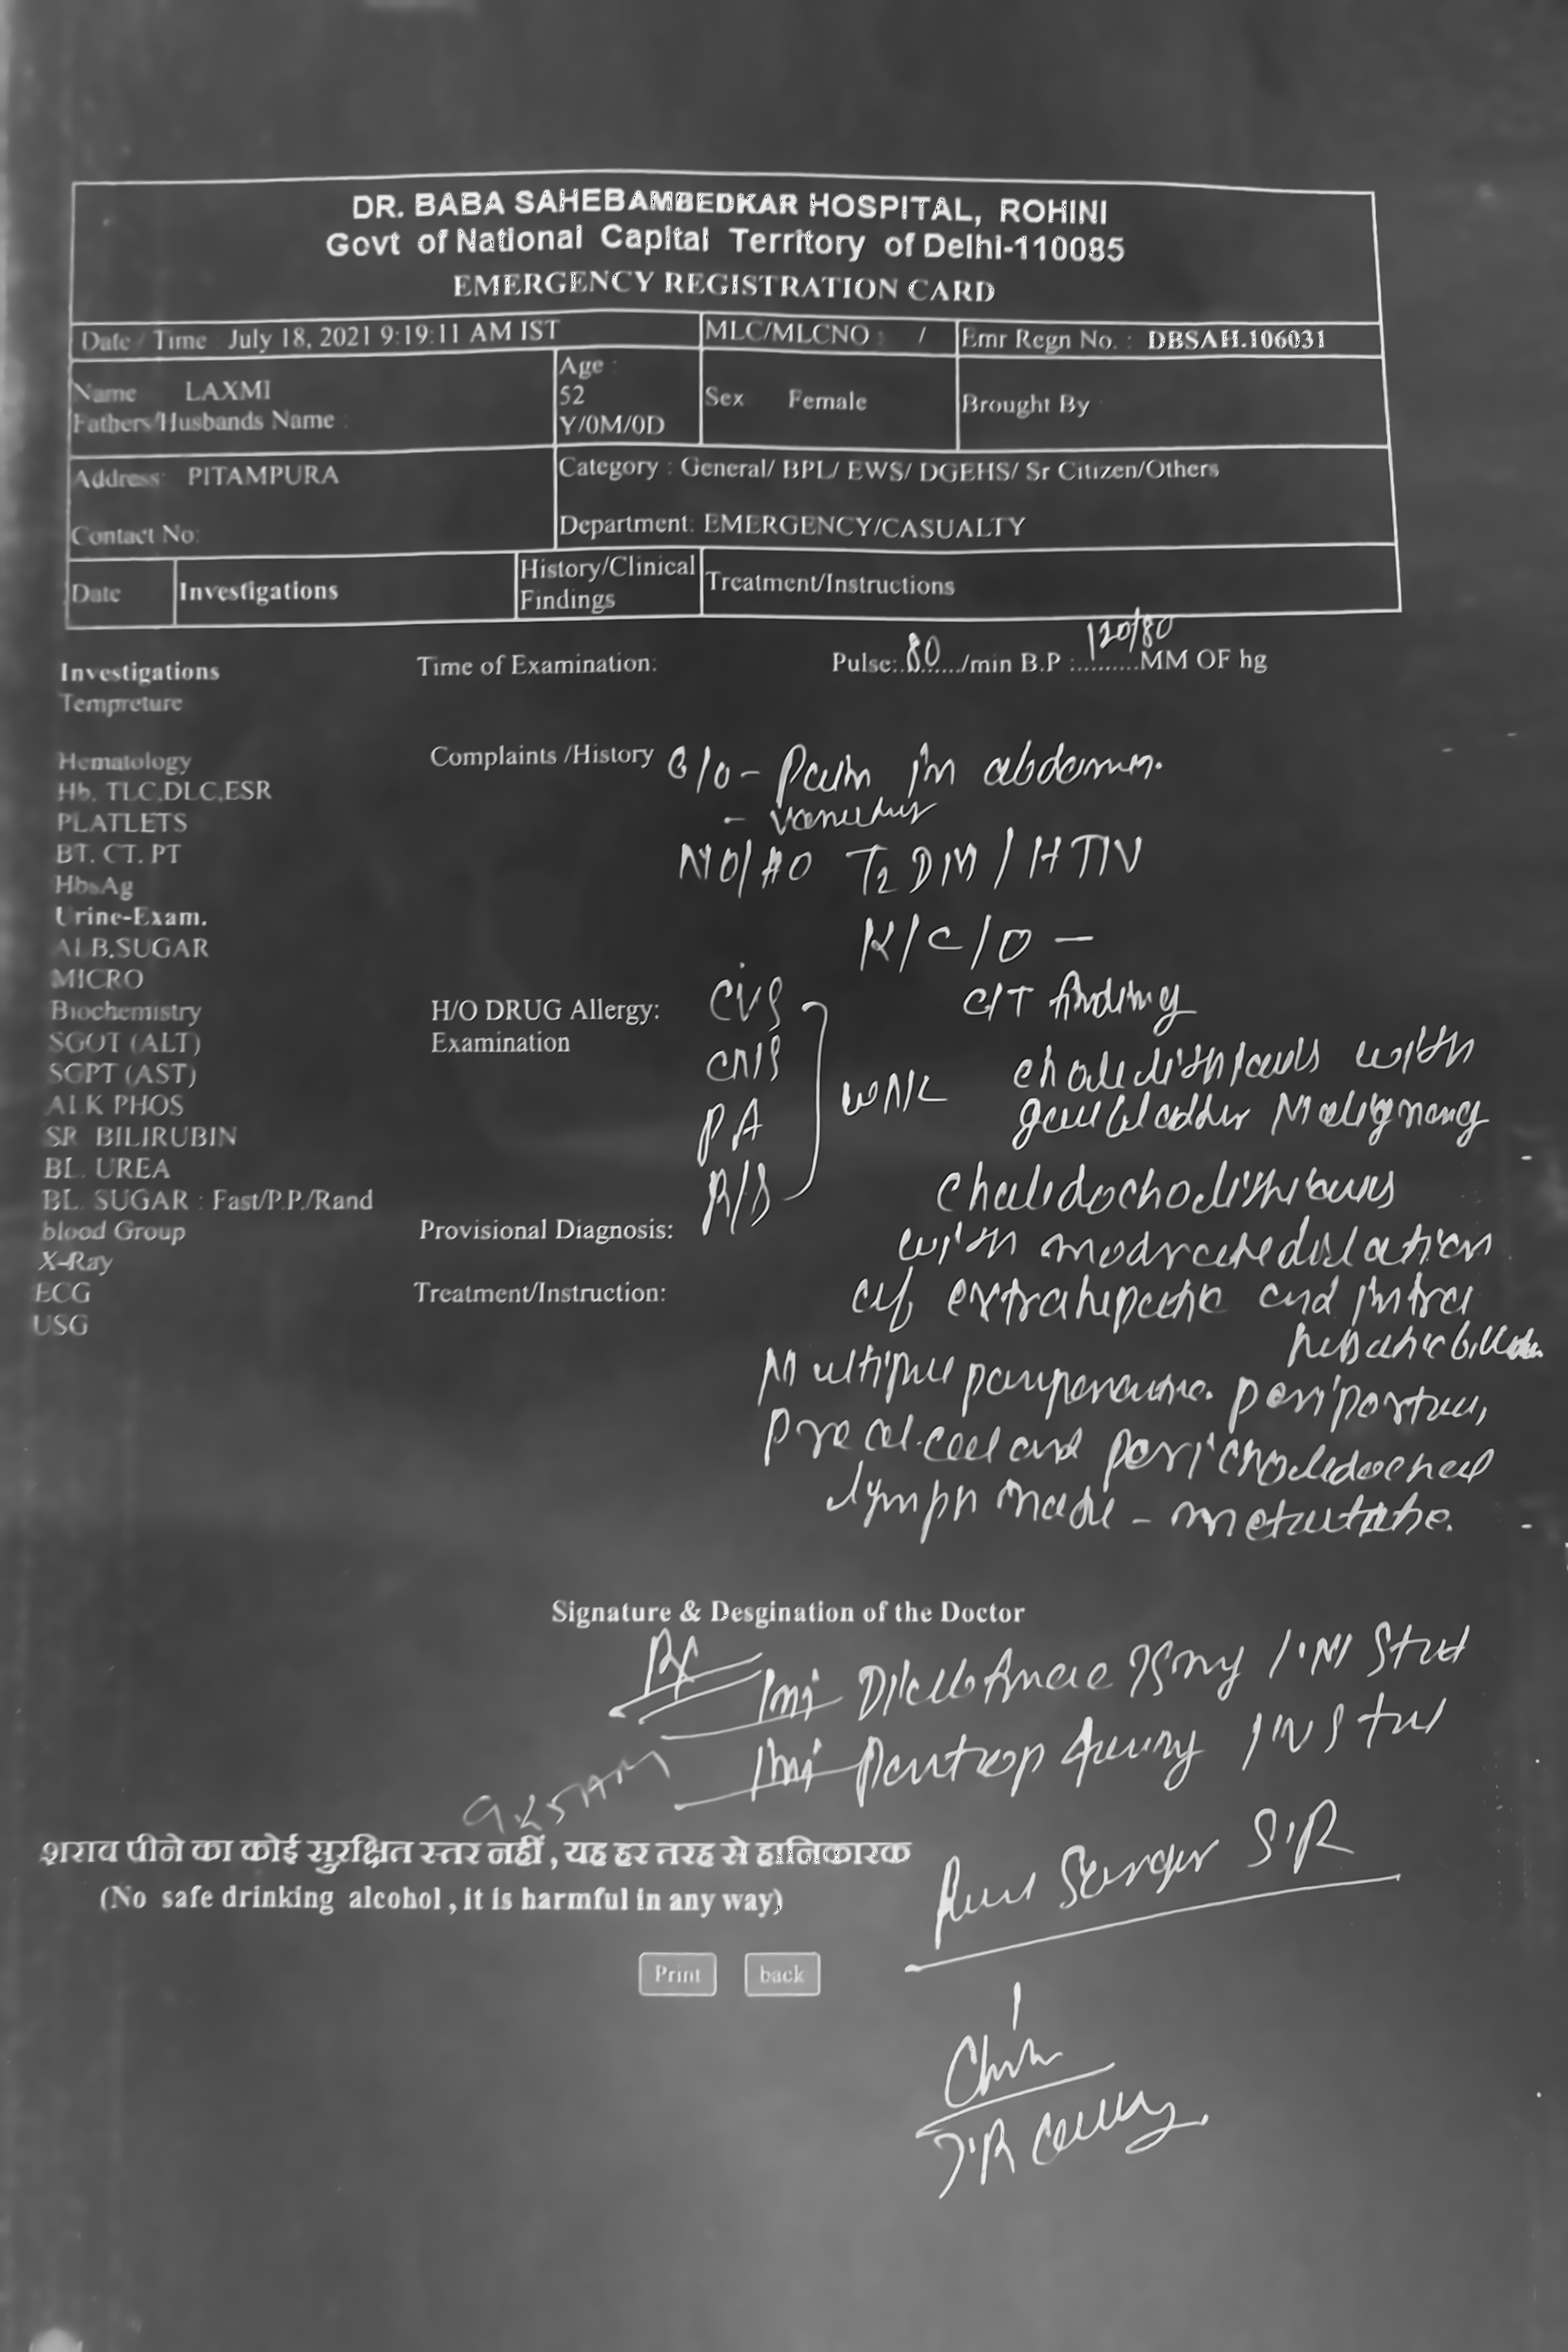 DR. BABA SAHEBAMBEDKAR HOSPITAL, ROHINI
Govt of National Capital Territory of Delhi-110085
EMERGENCY REGISTRATION CARD
Date / Time July 18, 2021 9:19:11 AM IST MLC/MLCNO : / Emr Regn No. : DBSAH.106031
Name LAXMI
Fathers/Husbands Name :
Age :
52
Y/0M/0D
Sex Female
Brought By
Address: PITAMPURA
Contact No:
Category : General/ BPL/ EWS/ DGEHS/ Sr Citizen/Others
Department: EMERGENCY/CASUALTY
Date Investigations History/Clinical
Findings
Treatment/Instructions
Investigations Time of Examination: Pulse:..80....../min B.P :..120/80..MM OF hg
Tempreture
Hematology
Hb, TLC,DLC,ESR
PLATLETS
BT. CT. PT
HbsAg
Urine-Exam.
ALB.SUGAR
MICRO
Biochemistry
SGOT (ALT)
SGPT (AST)
ALK PHOS
SR BILIRUBIN
BL. UREA
BL. SUGAR : Fast/P.P./Rand
blood Group
X-Ray
ECG
USG
Complaints /History C/o - Pain in abdomen.
-
N/O/HO T2DM / HTN
K/C/O -
H/O DRUG Allergy:
Examination
CVS
CNS
PA
R/S
WNL
C/T finding
with
gallbladder Malignancy
with moderate dilation
of extrahepatic and intra
hepatic
Multiple periportal,
and pericholedochal
lymph node - metastatic.
Provisional Diagnosis:
Treatment/Instruction:
Signature & Desgination of the Doctor
Rx
Inj 75mg I'M Stat
Inj Pantop 40mg IV Stat
शराव पीने का कोई सुरक्षित स्तर नहीं , यह हर तरह से हानिकारक
(No safe drinking alcohol , it is harmful in any way)
S'R
Print back